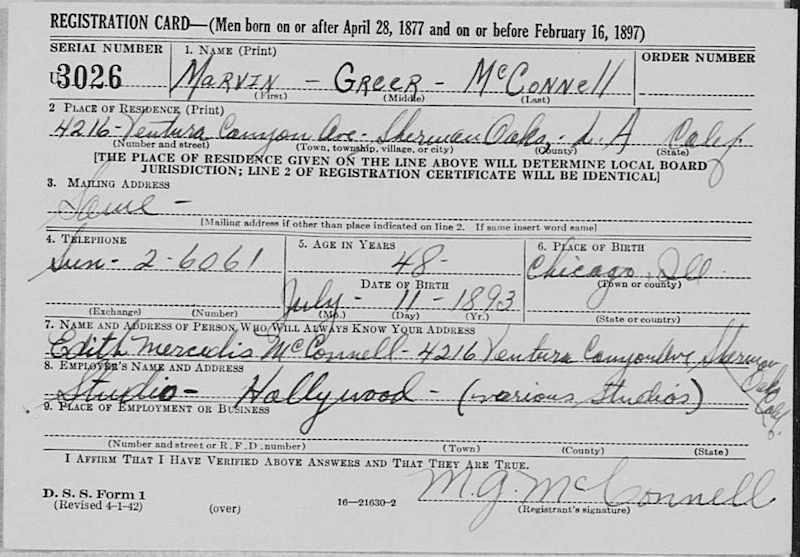 REGISTRATION CARD—(Men born on or after April 28, 1877 and on or before February 16, 1897)
SERIAL NUMBER 1. NAME (Print) ORDER NUMBER
U3026 MARVIN - GREER - McCONNEll
(First) (Middle) (Last)
2 PLACE OF RESIDENCE (Print)
4216 - Ventura Canyon Ave - Sherman Oaks, - L. A Calif.
(Number and street) (Town, township, village, or city) (County) (State)
[THE PLACE OF RESIDENCE GIVEN ON THE LINE ABOVE WILL DETERMINE LOCAL BOARD
JURISDICTION; LINE 2 OF REGISTRATION CERTIFICATE WILL BE IDENTICAL]
3. MAILING ADDRESS
Same -
[Mailing address if other than place indicated on line 2. If same insert word same]
4. TELEPHONE 5. AGE IN YEARS 6. PLACE OF BIRTH
Sun - 2 - 6061 48 - Chicago, Ill
DATE OF BIRTH (Town or county)
July - 11 - 1893
(Exchange) (Number) (Mo.) (Day) (Yr.) (State or country)
7. NAME AND ADDRESS OF PERSON WHO WILL ALWAYS KNOW YOUR ADDRESS
Edith Mercedis McConnell - 4216 Ventura Canyon Ave Sherman Oaks Calif.
8. EMPLOYER'S NAME AND ADDRESS
Studio - Hollywood - (various studios)
9. PLACE OF EMPLOYMENT OR BUSINESS
(Number and street or R. F. D. number) (Town) (County) (State)
I AFFIRM THAT I HAVE VERIFIED ABOVE ANSWERS AND THAT THEY ARE TRUE.
D. S. S. Form 1
(Revised 4-1-42) (over) 16—21630-2 M. G. McConnell
(Registrant's signature)